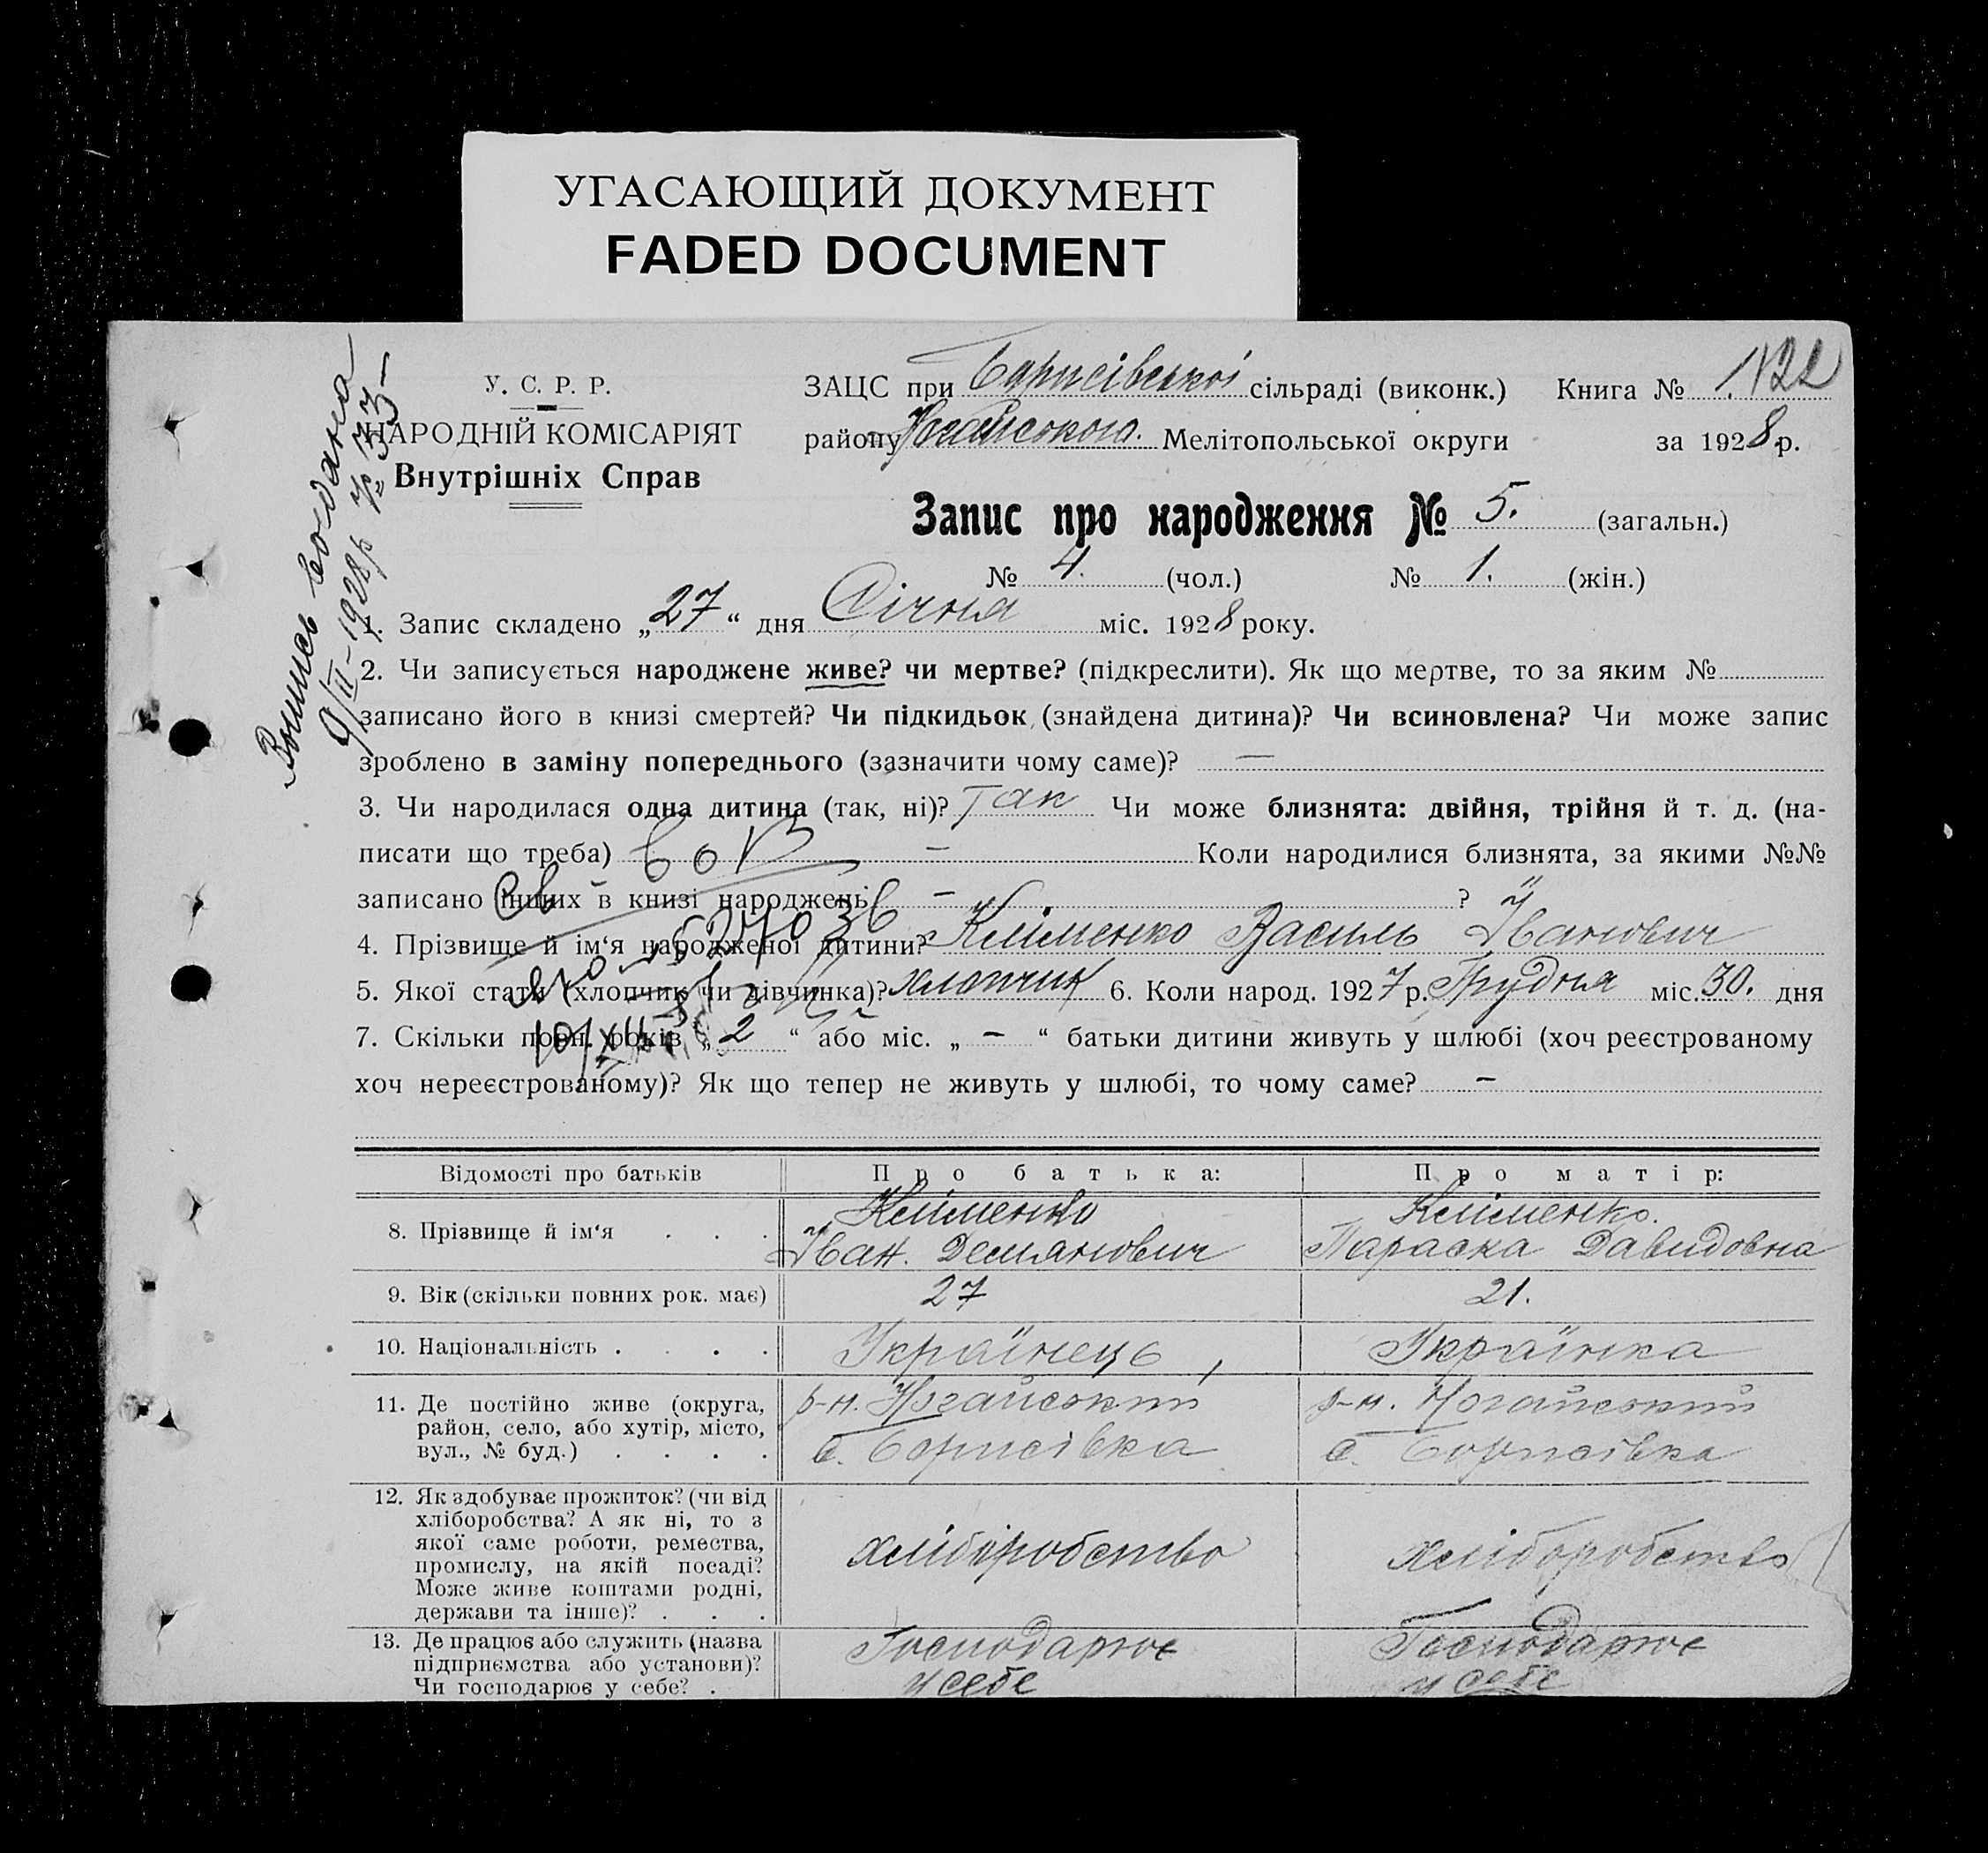 УГАСАЮЩИЙ ДОКУМЕНТ
FADED DOCUMENT
У. С. Р. Р.
НАРОДНІЙ КОМІСАРІЯТ
Внутрішніх Справ
ЗАЦС при Борисівської сільраді (виконк.) Книга №
району Ногайського. Мелітопольської округи за 1928 р.
Запис про народження № 5. (загальн.)
№ 4. (чол.) № 1. (жін.)
Выпись выдана
9/II-1928р № 33
1. Запис складено „27“ дня Січня міс. 1928 року.
2. Чи записується народжене живе? чи мертве? (підкреслити). Як що мертве, то за яким №
записано його в книзі смертей? Чи підкидьок (знайдена дитина)? Чи всиновлена? Чи може запис
зроблено в заміну попереднього (зазначити чому саме)? —
3. Чи народилася одна дитина (так, ні)? Так Чи може близнята: двійня, трійня й т. д. (на-
писати що треба) – Коли народилися близнята, за якими №№
записано інших в книзі народжень – ?
4. Прізвище й ім‘я народженої дитини? Клименко Василь Іванович
5. Якої стати (хлопчик чи дівчинка)? хлопчик 6. Коли народ. 1927 р. Грудня міс. 30. дня
7. Скільки повн. років „2“ або міс. „ – “ батьки дитини живуть у шлюбі (хоч реєстрованому
хоч нереєстрованому)? Як що тепер не живуть у шлюбі, то чому саме? –
Відомості про батьків Про батька: Про матір:
8. Прізвище й ім‘я . . . Клименко Іван. Демянович Клименко. Параска Давидовна
9. Вік (скільки повних рок. має) 27 21.
10. Національність . . . . Українець Українка
11. Де постійно живе (округа,
район, село, або хутір, місто,
вул., № буд.) . . . .
р-н. Ногайський р-н. Ногайський
с. Борисівка с. Борисівка
12. Як здобуває прожиток? (чи від
хліборобства? А як ні, то з
якої саме роботи, ремества,
промислу, на якій посаді?
Може живе коштами родні,
держави та інше)? . . .
хліборобство хліборобство
13. Де працює або служить (назва
підприємства або установи)?
Чи господарює у себе? .
Господарює Господарює
у себе у себе